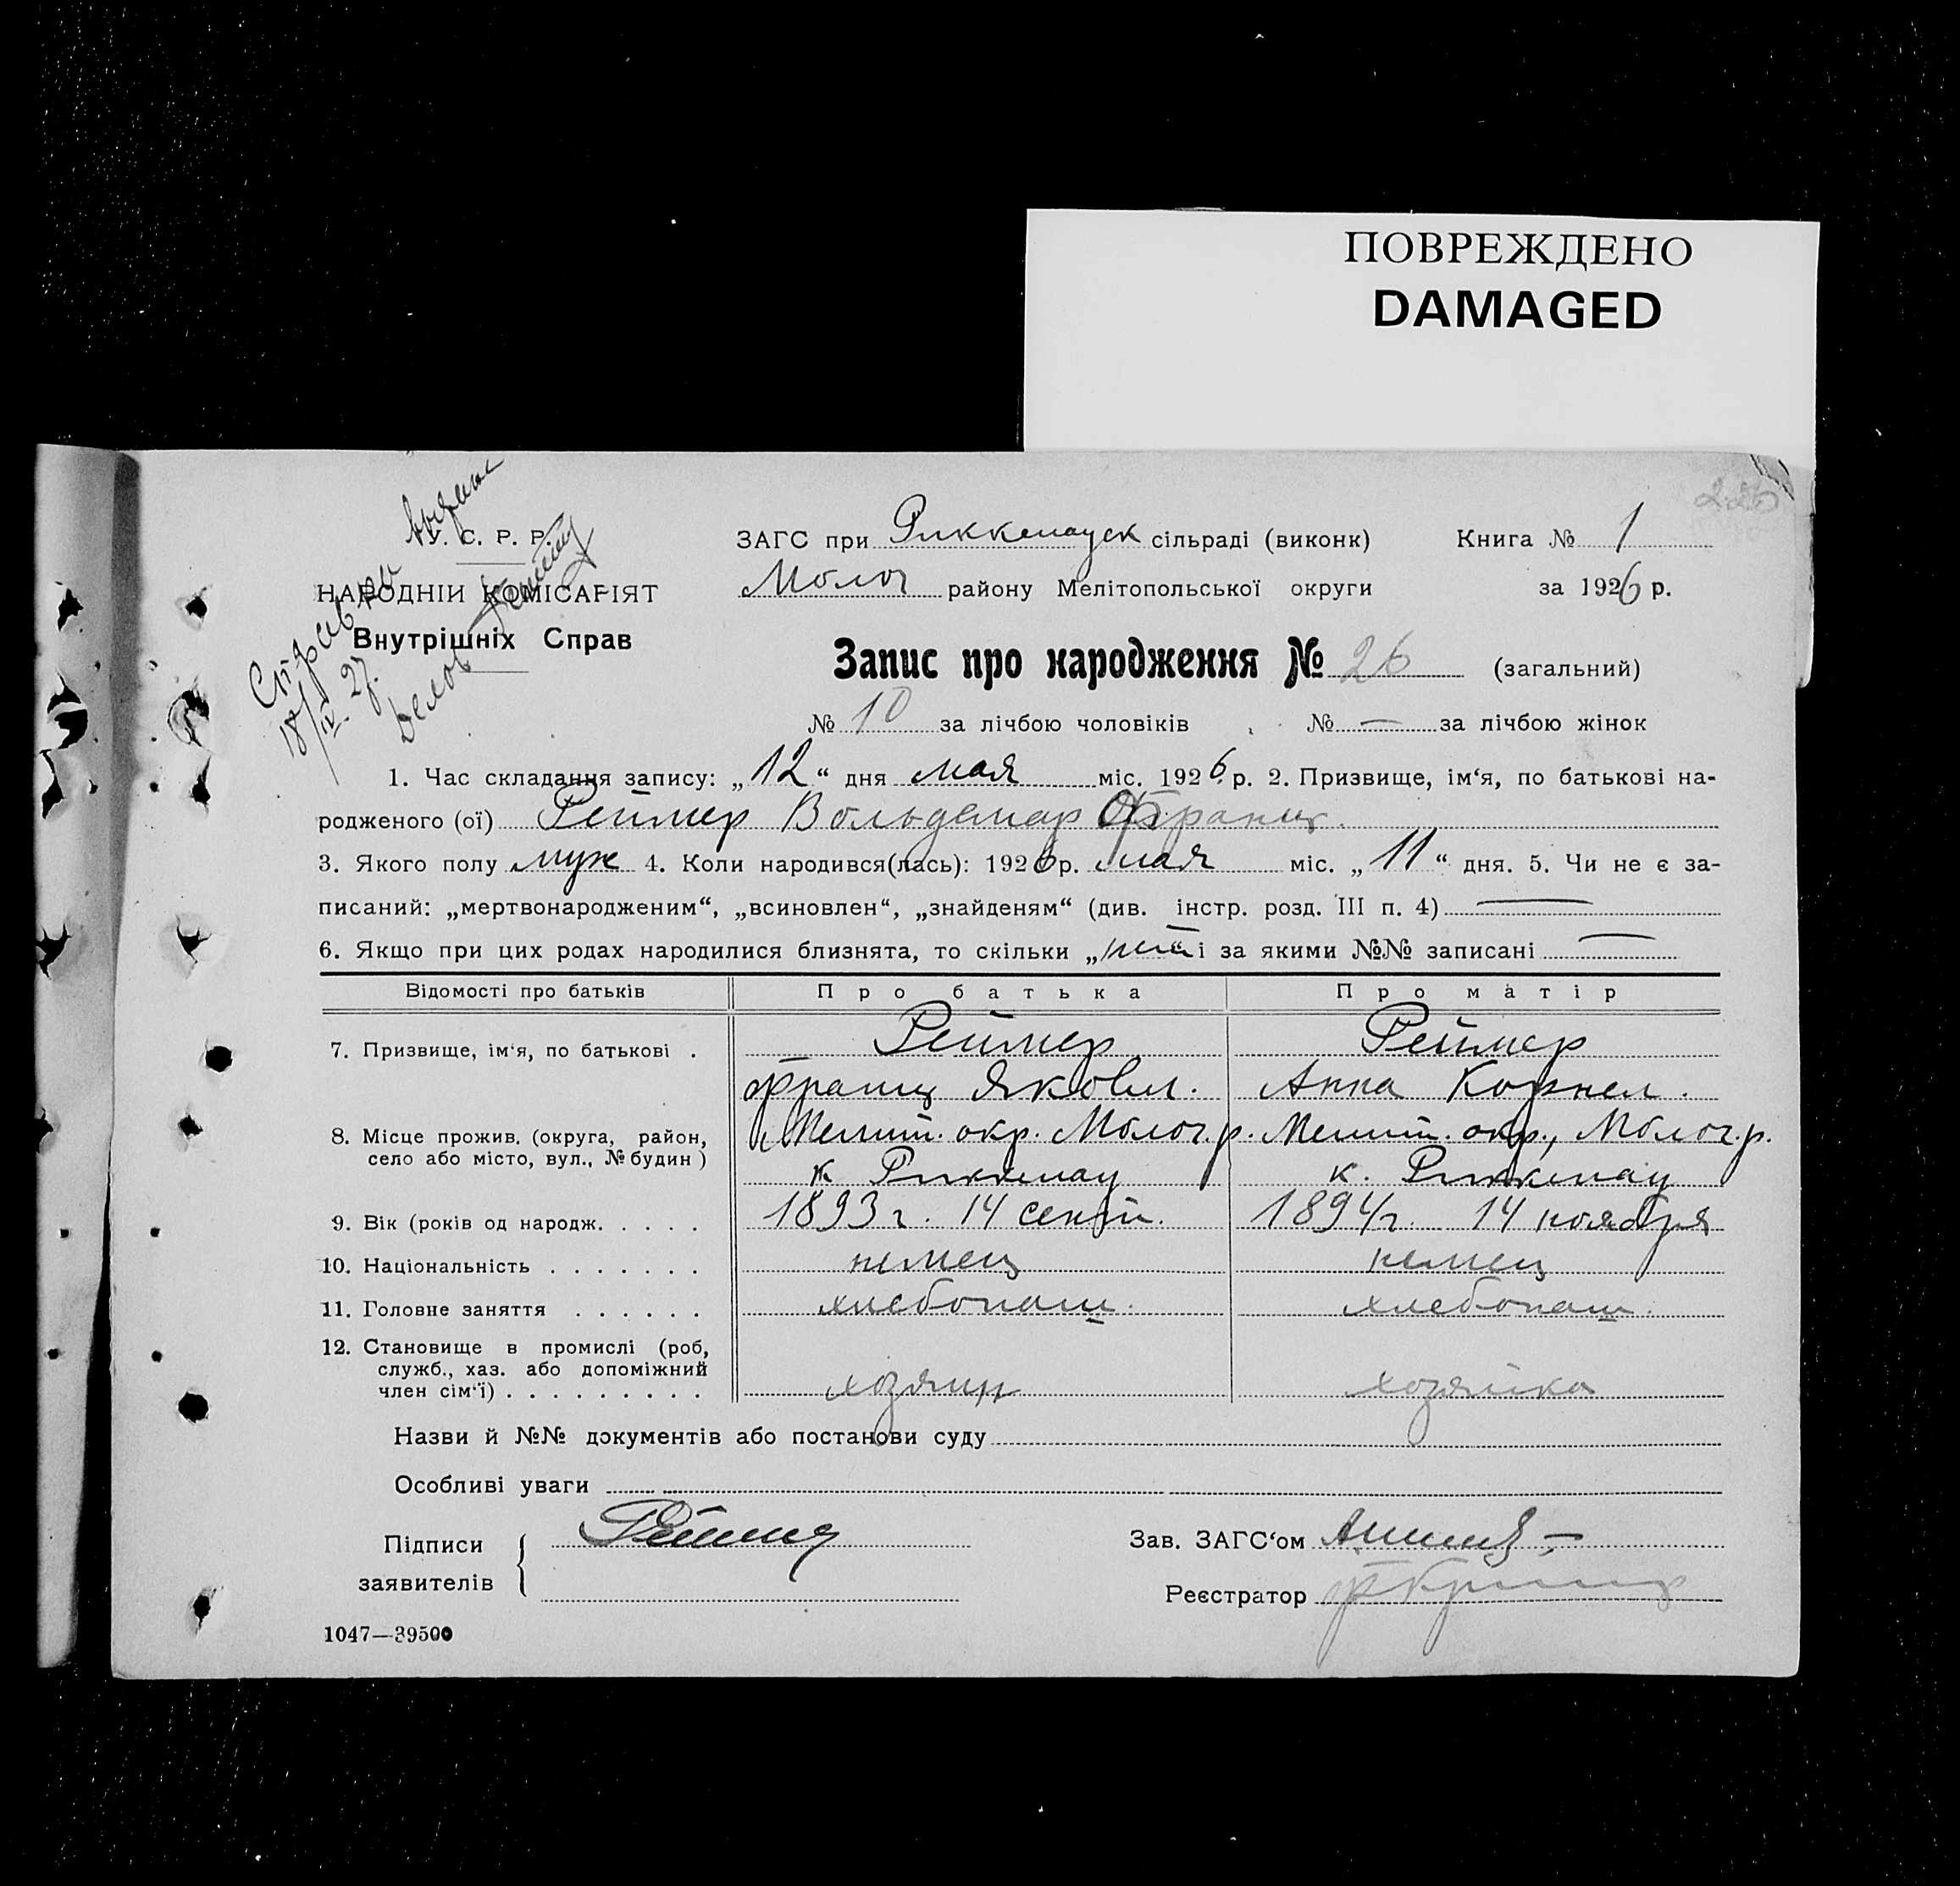 ПОВРЕЖДЕНО
DAMAGED
У. С. Р. Р.
НАРОДНІЙ КОМІСАРІЯТ
Внутрішніх Справ
Справка
18/IV. 27.
ЗАГС при Рюккенауск сільраді (виконк) Книга № 1
Молоч району Мелітопольської округи за 1926 р.
Запис про народження № 26 (загальний)
№ 10 за лічбою чоловіків № — за лічбою жінок
1. Час складання запису: „12“ дня мая міс. 1926 р. 2. Призвище, ім‘я, по батькові на-
родженого (ої) Реймер Вольдемар Франц.
3. Якого полу муж 4. Коли народився(лась): 1926 р. мая міс. „11“ дня. 5. Чи не є за-
писаний: „мертвонародженим“, „всиновлен“, „знайденям“ (див. інстр. розд. III п. 4) —
6. Якщо при цих родах народилися близнята, то скільки „нет“ і за якими №№ записані —
Відомості про батьків Про батька Про матір
7. Призвище, ім‘я, по батькові . Реймер Реймер
Франц Яковл. Анна Корнел.
8. Місце прожив. (округа, район, Мелит. окр. Молоч. р. Мелит. окр., Молоч. р.
село або місто, вул., № будин ) к Рюккенау к. Рюккенау
9. Вік (років од народж. . . . . 1893 г. 14 сент. 1894 г. 14 ноября
10. Національність . . . . . . . немец немец
11. Головне заняття . . . . . . хлебопаш. хлебопаш.
12. Становище в промислі (роб,
служб., хаз. або допоміжний
член сім‘ї) . . . . . . . . . хозяин хозяйка
Назви й №№ документів або постанови суду
Особливі уваги
Підписи Реймер Зав. ЗАГС‘ом
заявителів Реєстратор
1047—39500